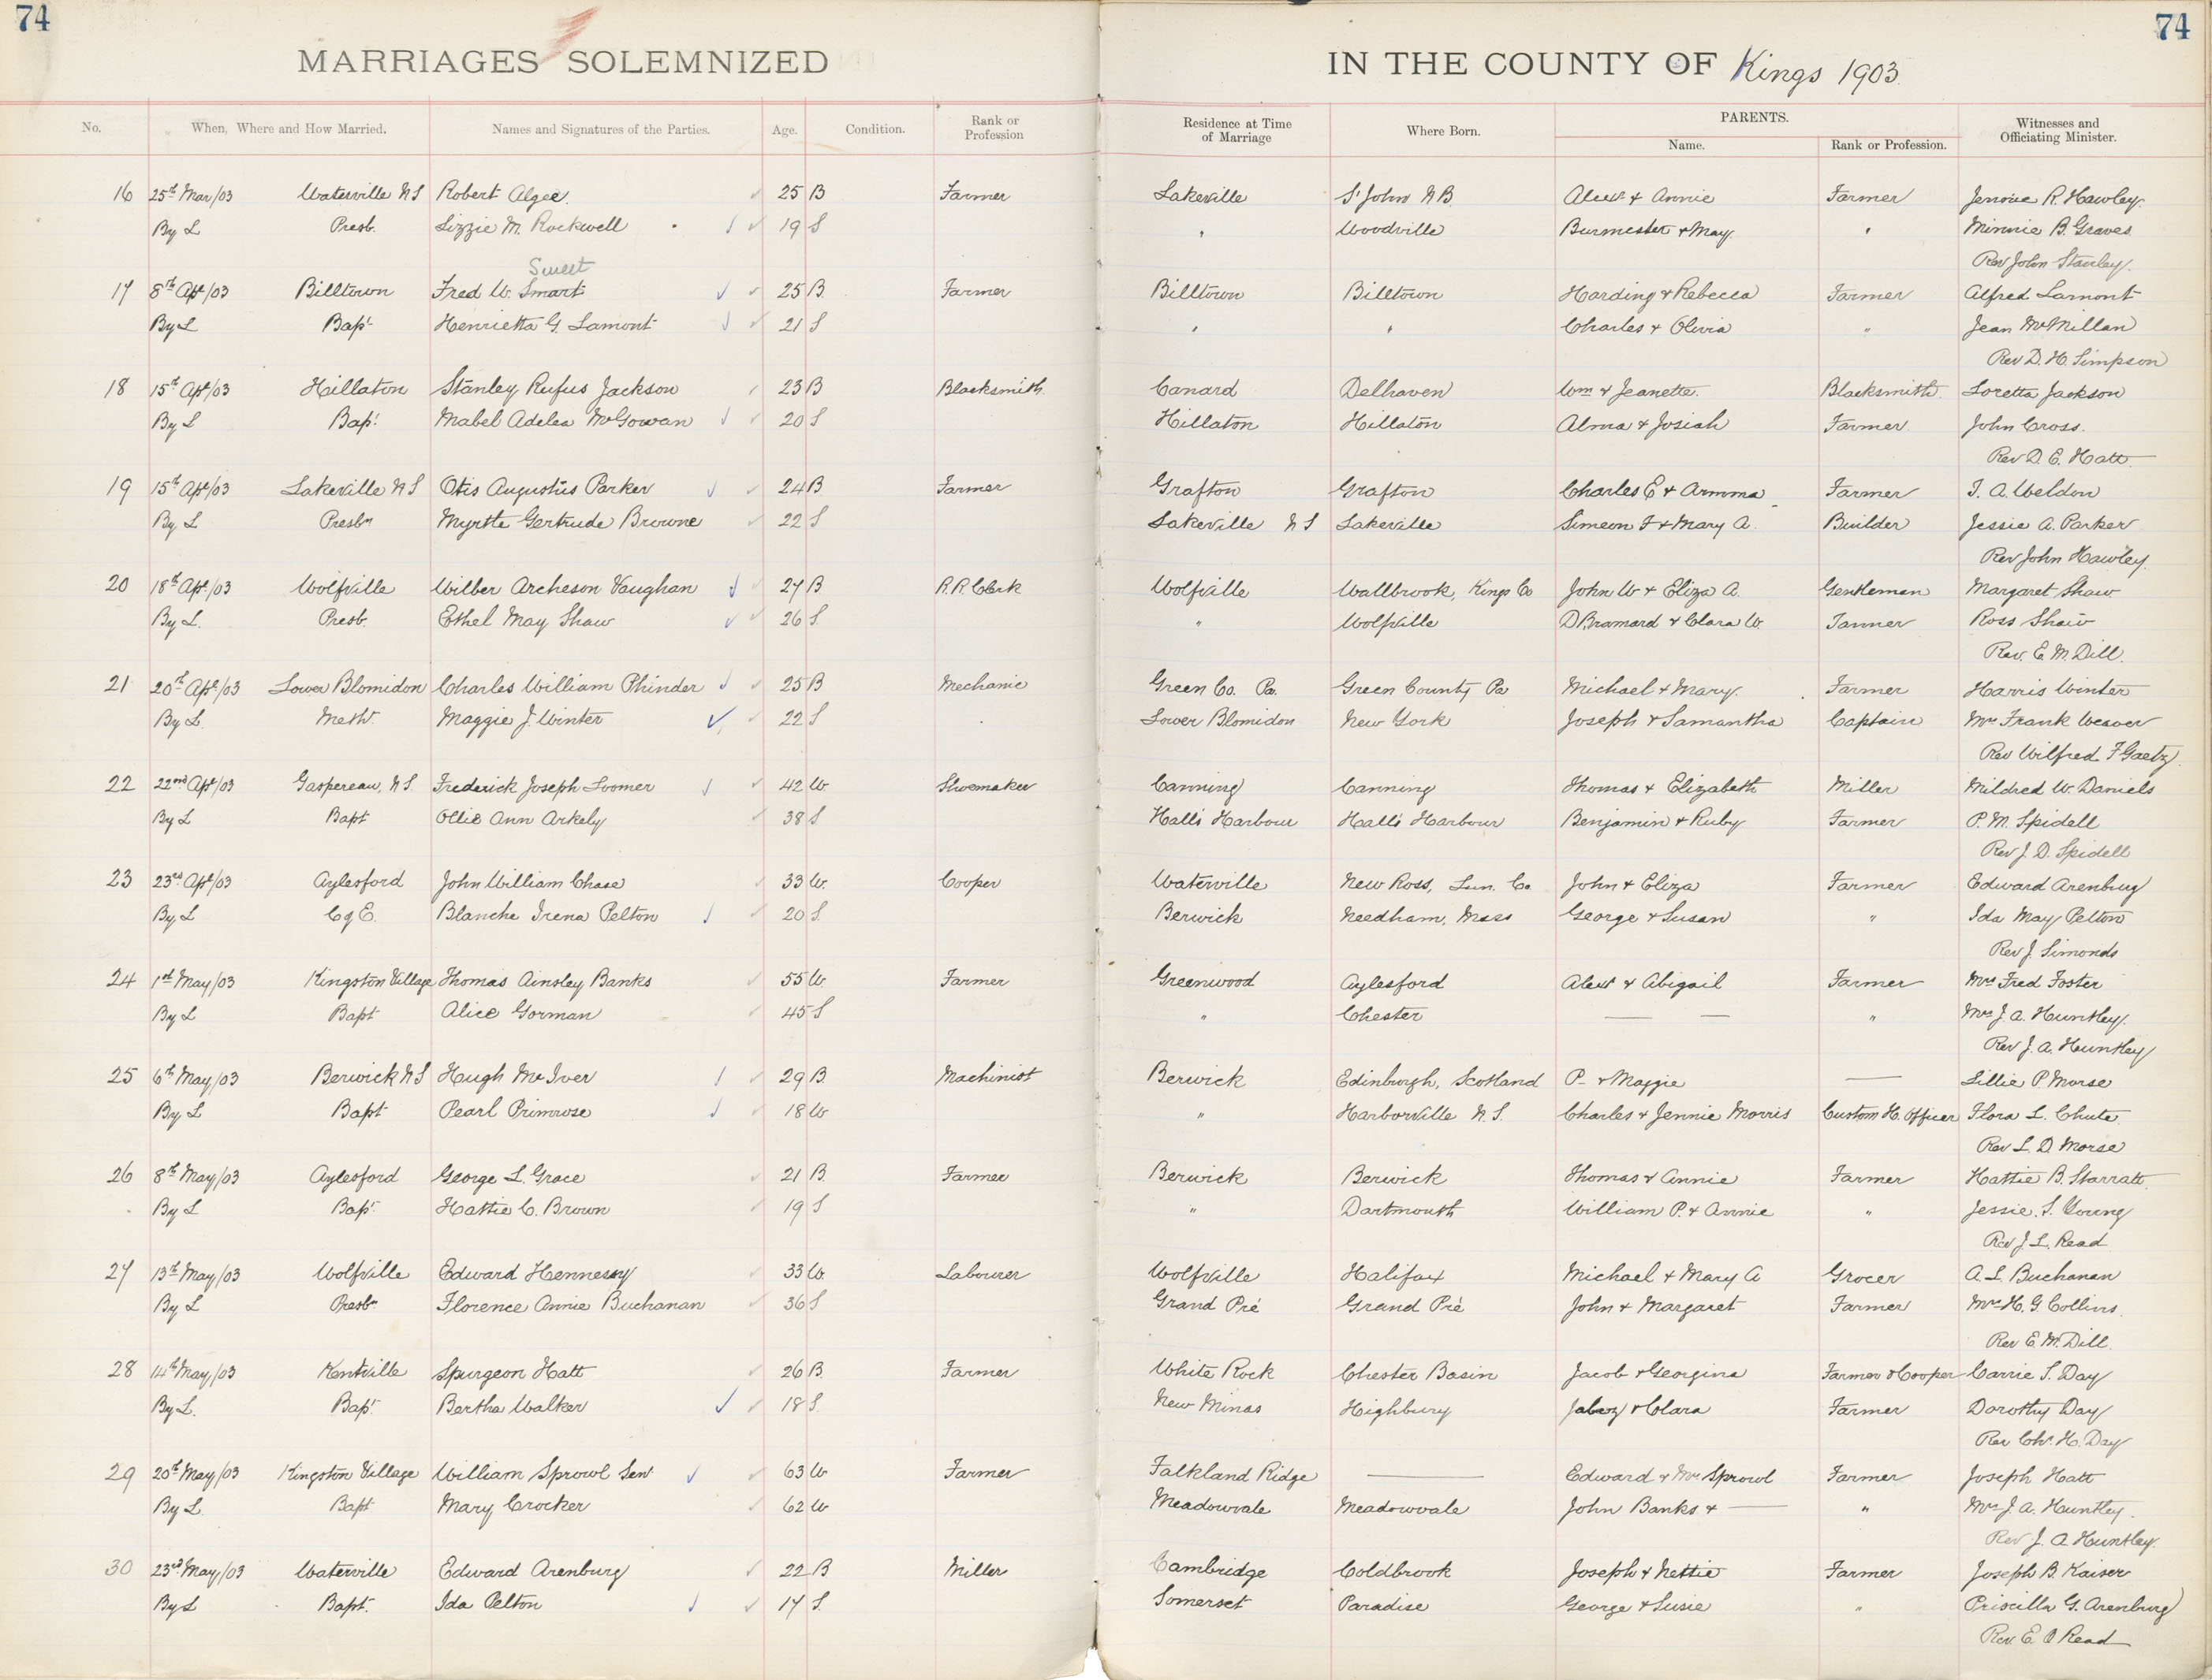 74 74
MARRIAGES SOLEMNIZED IN THE COUNTY OF Kings 1903.
No. When, Where and How Married. Names and Signatures of the Parties. Age. Condition. Rank or Profession Residence at Time of Marriage Where Born. PARENTS. Name. Rank or Profession. Witnesses and Officiating Minister.
16 25th Mar/03 Waterville N S Robert Algee. 25 B Farmer Lakeville St John N B. Alexr + Annie Farmer Jennie R. Hawley.
By L Presb. Lizzie M. Rockwell 19 S " Woodville Burmester + May. " Minnie B. Graves.
Rev John Stanley.
Sweet
17 8th Apl/03 Billtown Fred W. Smart 25 B. Farmer Billtown Billtown Harding + Rebecca Farmer Alfred Lamont
By L Bapt Henrietta G. Lamont 21 S " " Charles + Olivia " Jean McMillan
Rev D. H. Simpson
18 15th Apl/03 Hillaton Stanley Rufus Jackson 23 B Blacksmith. Canard Delhaven Wm + Jeanette. Blacksmith. Loretta Jackson
By L Bapt Mabel Adelea McGowan 20 S Hillaton Hillaton Alma + Josiah Farmer John Cross.
Rev D. E. Hatt
19 15th Apl/03 Lakeville N S Otis Augustus Parker 24 B Farmer Grafton Grafton Charles E + Armma Farmer I. A. Weldon
By L Presbn Myrtle Gertrude Browne 22 S Lakeville N S Lakeville Simeon F + Mary A. Builder Jessie A. Parker
Rev John Hawley.
20 18th Apl/03 Wolfville Wilber Archeson Vaughan 27 B R.R. Clerk Wolfville Wallbrook, Kings Co John W + Eliza A. Gentleman Margaret Shaw
By L. Presb. Ethel May Shaw 26 S " Wolfville D Bramard + Clara W. Tanner Ross Shaw
Rev. E. M. Dill.
21 20th Apl/03 Lower Blomidon Charles William Phinder 25 B Mechanic Green Co. Pa. Green County Pa Michael + Mary. Farmer Harris Winter
By L. Meth. Maggie J. Winter 22 S Lower Blomidon New York Joseph + Samantha Captain Mrs Frank Weaver
Rev Wilfred F Gaetz
22 22nd Apl/03 Gaspereau, N S. Frederick Joseph Loomer 42 W Shoemaker Canning Canning Thomas + Elizabeth Miller Mildred W. Daniels
By L Bapt Ollie Ann Arkely 38 S Hall's Harbour Hall's Harbour Benjamin + Ruby Farmer P. M. Spidell
Rev J. D. Spidell
23 23rd Apl/03 Aylesford John William Chase 33 W. Cooper Waterville New Ross, Lun. Co John + Eliza Farmer Edward Arenburg
By L C of E. Blanche Irena Pelton 20 S Berwick Needham, Mass George + Susan " Ida May Pelton
Rev J. Simonds
24 1st May/03 Kingston Village Thomas Ainsley Banks 55 W Farmer Greenwood Aylesford Alexr + Abigail Farmer Mrs Fred Foster
By L Bapt Alice Gorman 45 S " Chester — — " Mrs J. A. Huntley.
Rev J. A. Huntley
25 6th May/03 Berwick N S Hugh McIver 29 B. Machinist Berwick Edinburgh, Scotland P- + Maggie — Lillie P. Morse
By L Bapt Pearl Primrose 18 W " Harborville N. S. Charles + Jennie Morris Custom H. Officer Flora L. Chute
Rev L. D. Morse
26 8th May/03 Aylesford George L. Grace 21 B. Farmer Berwick Berwick Thomas + Annie Farmer Hattie B. Starratt.
By L Bapt Hattie C. Brown 19 S " Dartmouth William P. + Annie " Jessie. S. Young
Rev J. L. Read
27 13th May/03 Wolfville Edward Hennessy 33 W. Labourer Wolfville Halifax Michael + Mary A Grocer A. L. Buchanan
By L Presbn Florence Annie Buchanan 36 S Grand Pré Grand Pré John + Margaret Farmer Mrs H. G. Collins.
Rev E. M. Dill.
28 14th May/03 Kentville Spurgeon Hatt 26 B. Farmer White Rock Chester Basin Jacob + Georgina Farmer + Cooper Carrie S. Day
By L. Bapt Bertha Walker 18 S New Minas Highbury Jabez + Clara Farmer Dorothy Day
Rev Chs. H. Day
29 20th May/03 Kingston Village William Sprowl Senr 63 W Farmer Falkland Ridge — Edward + Mrs Sprowl Farmer Joseph Hatt
By L Bapt Mary Crocker 62 W Meadowvale Meadowvale John Banks + — " Mrs J. A. Huntley.
Rev J. A Huntley.
30 23rd May/03 Waterville Edward Arenburg 22 B Miller Cambridge Coldbrook Joseph + Nettie Farmer Joseph B. Kaiser
By L Bapt. Ida Pelton 17 S. Somerset Paradise George + Susie " Priscilla G. Arenburg
Rev. E. O Read